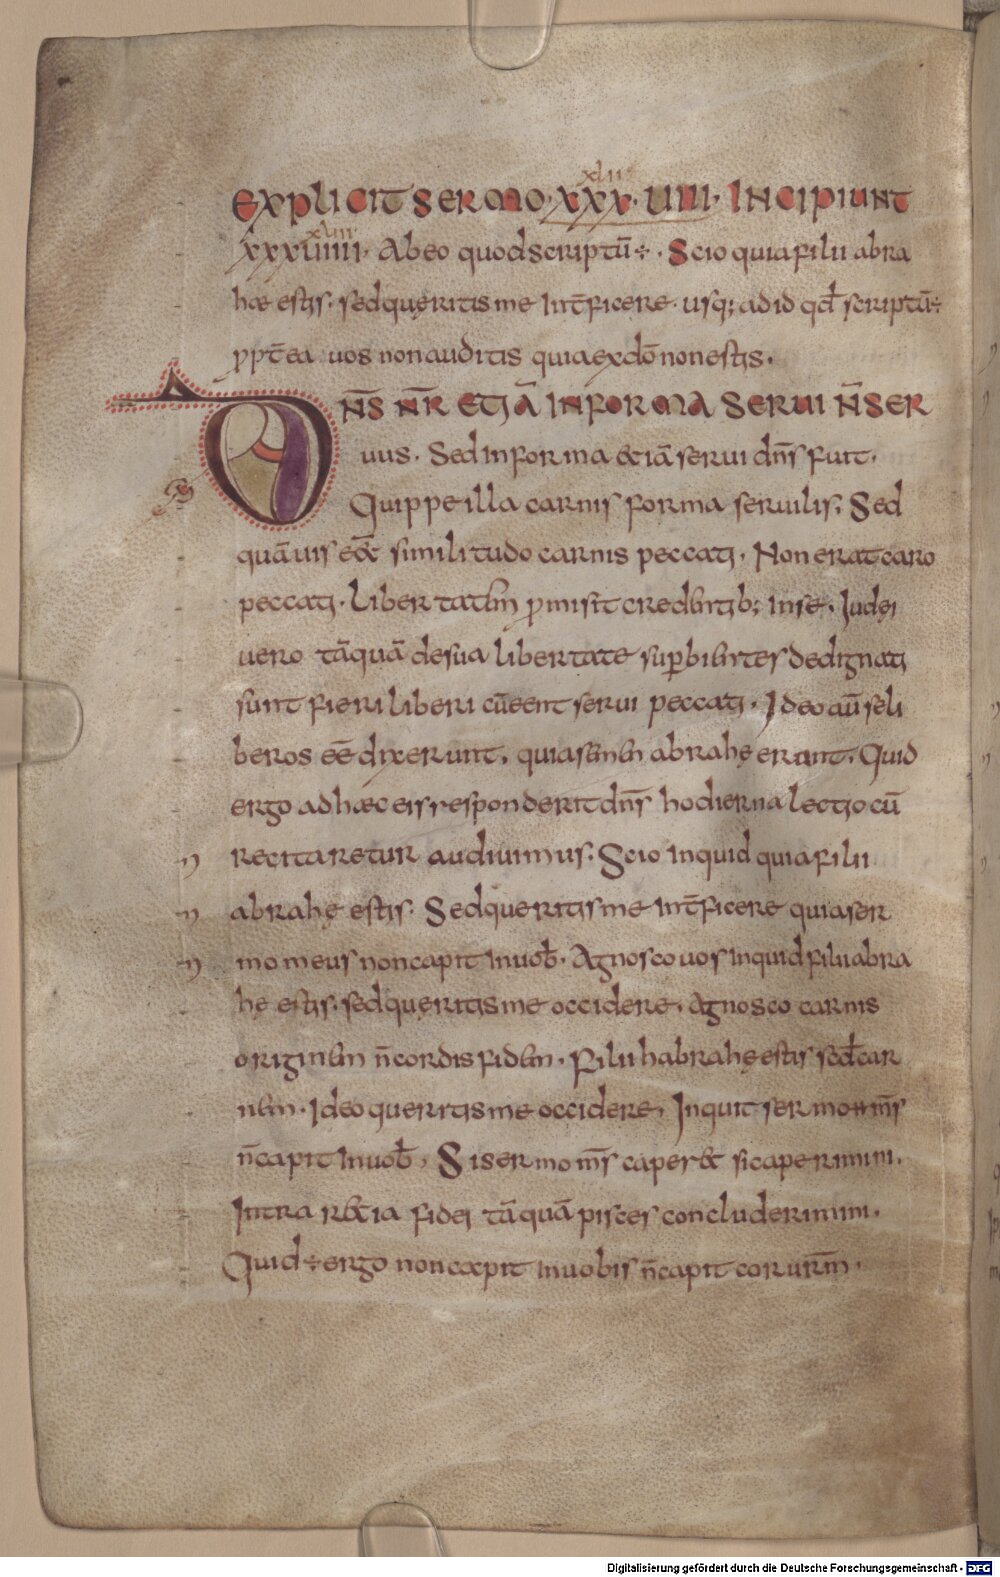 xlii
EXPLICIT SERMO XXX·UIIII· INCIPIUNT
xliii
xxxuiiii· Ab eo quod scriptū ÷ · Scio quia filii abra
hæ estis· sed queritis me int̄ficere· usq; ad id qđ scriptū ÷
ꝓpt̄ea uos non auditis quia ex dō non estis·
DN̄S NR̄ ETIĀ IN FORMA SERUI N̄ SER
uus· Sed in forma &iā serui dn̄s fuit·
Quippe illa carnis forma seruilis; Sed
quāuis eēt similitudo carnis peccati· Non erat caro
peccati· Libertatem ꝓmisit credentib; in se· Iudei
uero tāquā de sua libertate suꝑbientes dedignati
sunt fieri liberi cū eent serui peccati· Ideo aū se li
beros eē dixerunt, quia semen abrahę erant· Quid
ergo ad hæc eis responderit dn̄s hodierna lectio cū
recitaretur audiuimus· Scio inquid quia filii
abrahę estis· Sed queritis me int̄ficere quia ser
mo meus non capit in uob̄· Agnosco uos inquid filii abra
hę estis· sed quęritis me occidere· Agnosco carnis
originem n̄ cordis fidem· Filii habrahę estis sed car
nem· Ideo queritis me occidere, Inquit sermo m̄s
n̄ capit in uob̄, Si sermo m̄s caper& si caperimini·
Intra r&ia fidei tāquā pisces concluderimini·
Quid ÷ ergo non cœpit in uobis n̄ capit cor ur̄m·